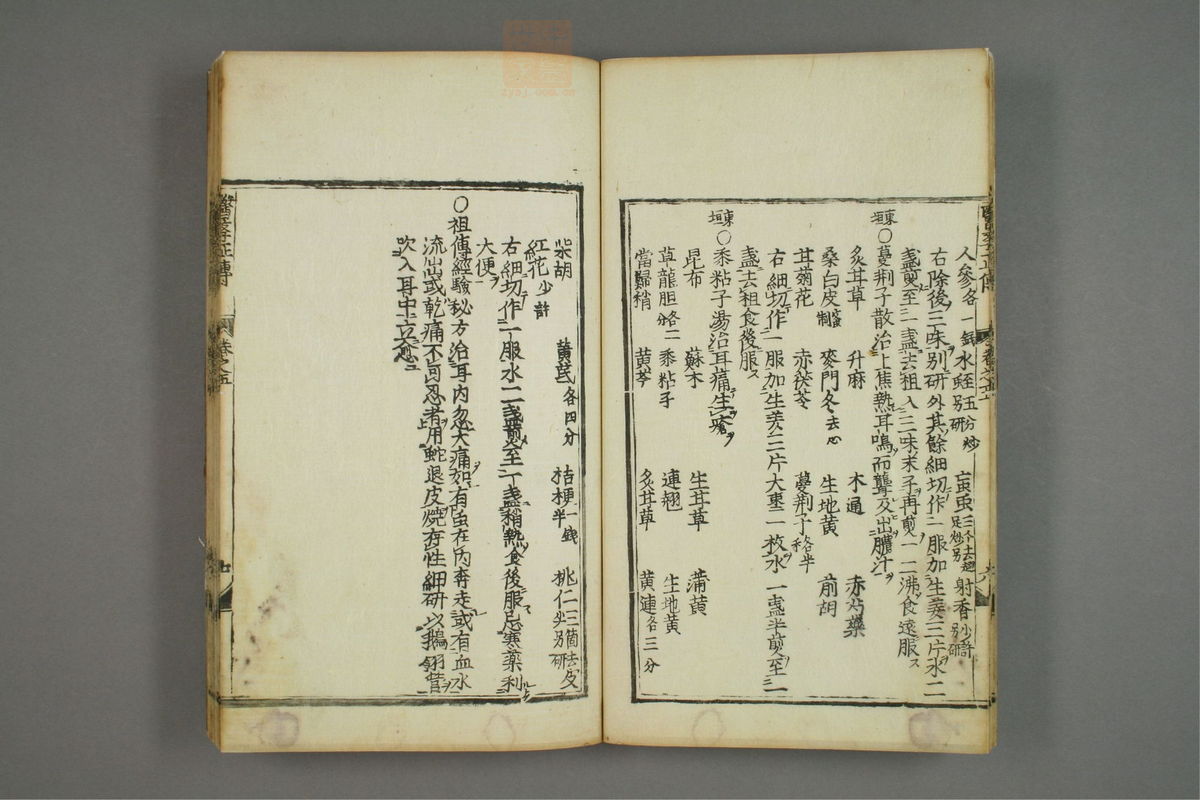 人參各一錢 水蛭五分炒別研 䖟虫三个去翅足炒別 射香少許別研
右除後三味別研外其餘細切作一服加生姜三片水二
盞煎至一盞去粗入三味末子再煎一二沸食遠服
東垣○蔓荆子散治上焦熱耳鳴而聾及出膿汁
炙甘草 升麻 木通 赤芍藥
桑白皮蜜制 麥門冬去心 生地黄 前胡
甘菊花 赤茯苓 蔓荆子各半
右細切作一服加生姜三片大棗二枚水一盞半煎至一
盞去粗食後服
東垣○黍粘子湯治耳痛生瘡
昆布 蘇木 生甘草 蒲黄
草龍胆各二分 黍粘子 連翹 生地黄
當歸梢 黄芩 炙甘草 黄連各三分
柴胡 黄芪各四分 桔梗一錢半 桃仁三箇去皮尖別研
紅花少許
右細切作一服水二盞煎至一盞稍熱食後服忌寒藥利
大便
○祖傳經驗秘方治耳内忽大痛如有虫在内奔走或有血水
流出或乾痛不可忍者用蛇退皮燒存性細研以鵝翎管
吹入耳中立愈
醫學正傳 卷之五